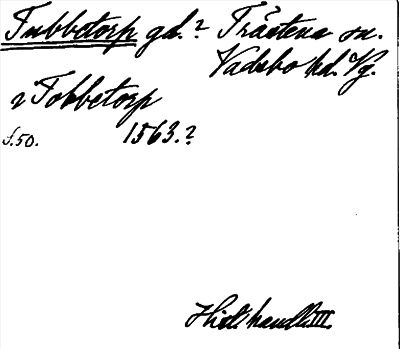 Tubbetorp gd.? Trästena sn.
Vadsbo hd. Vg.
i Tobbetorp
s. 50. 1563.?
Hist. handl. III.